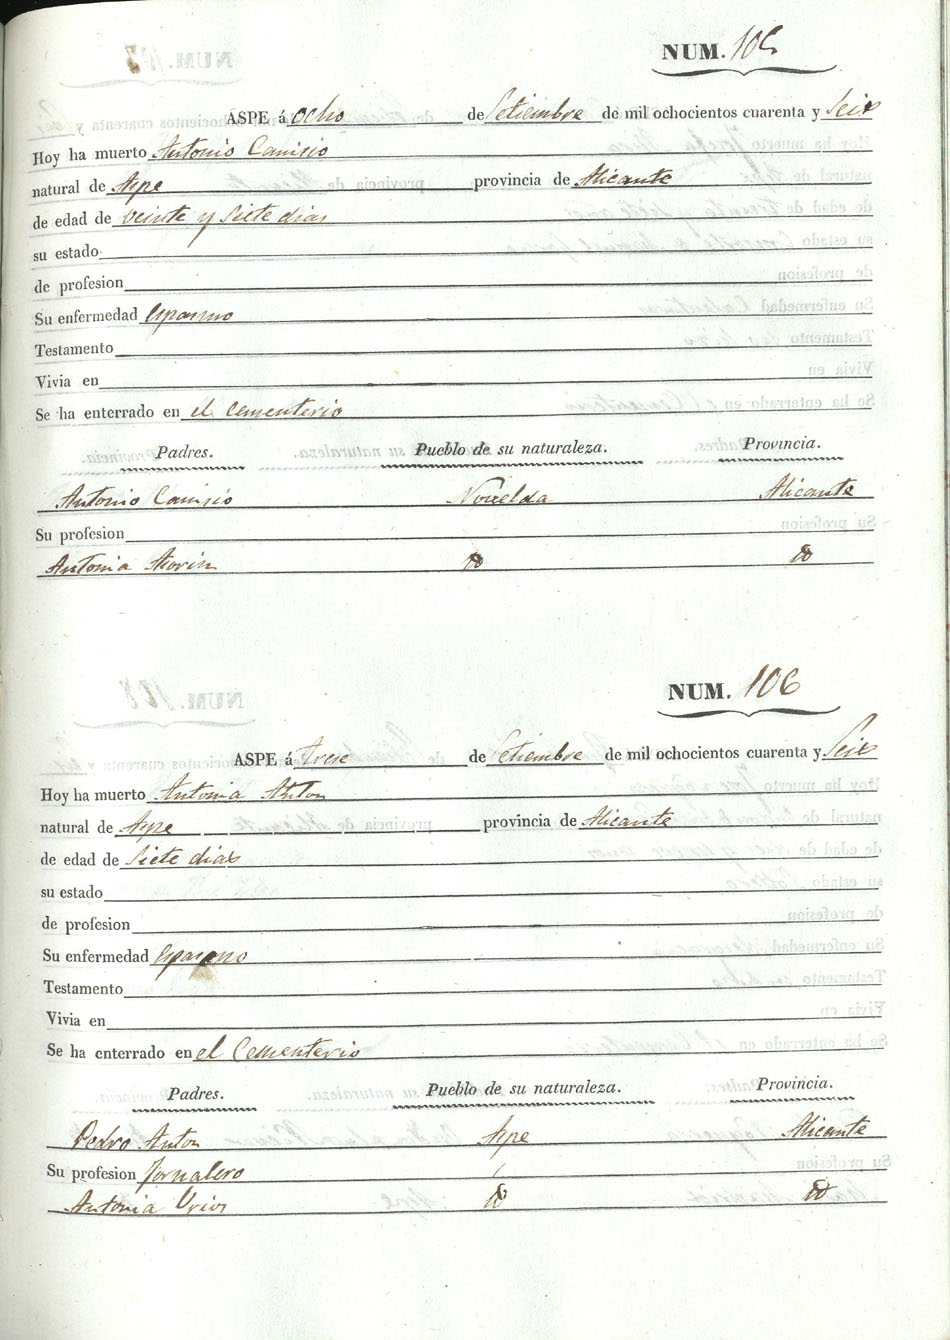 NUM. 105
ASPE á ocho de Setiembre de mil ochocientos cuarenta y Seis
Hoy ha muerto Antonio Canicio
natural de Aspe provincia de Alicante
de edad de veinte y siete dias
su estado
de profesion
Su enfermedad espasmo
Testamento
Vivia en
Se ha enterrado en el cementerio
Padres. Pueblo de su naturaleza. Provincia.
Antonio Canicio Novelda Alicante
Su profesion
Antonia
NUM. 106
ASPE á trese de Setiembre de mil ochocientos cuarenta y Seis
Hoy ha muerto Antonia Anton
natural de Aspe provincia de Alicante
de edad de Siete dias
su estado
de profesion
Su enfermedad espasmo
Testamento
Vivia en
Se ha enterrado en el Cementerio
Padres. Pueblo de su naturaleza. Provincia.
Pedro Anton Aspe Alicante
Su profesion Jornalero
Antonia Urios